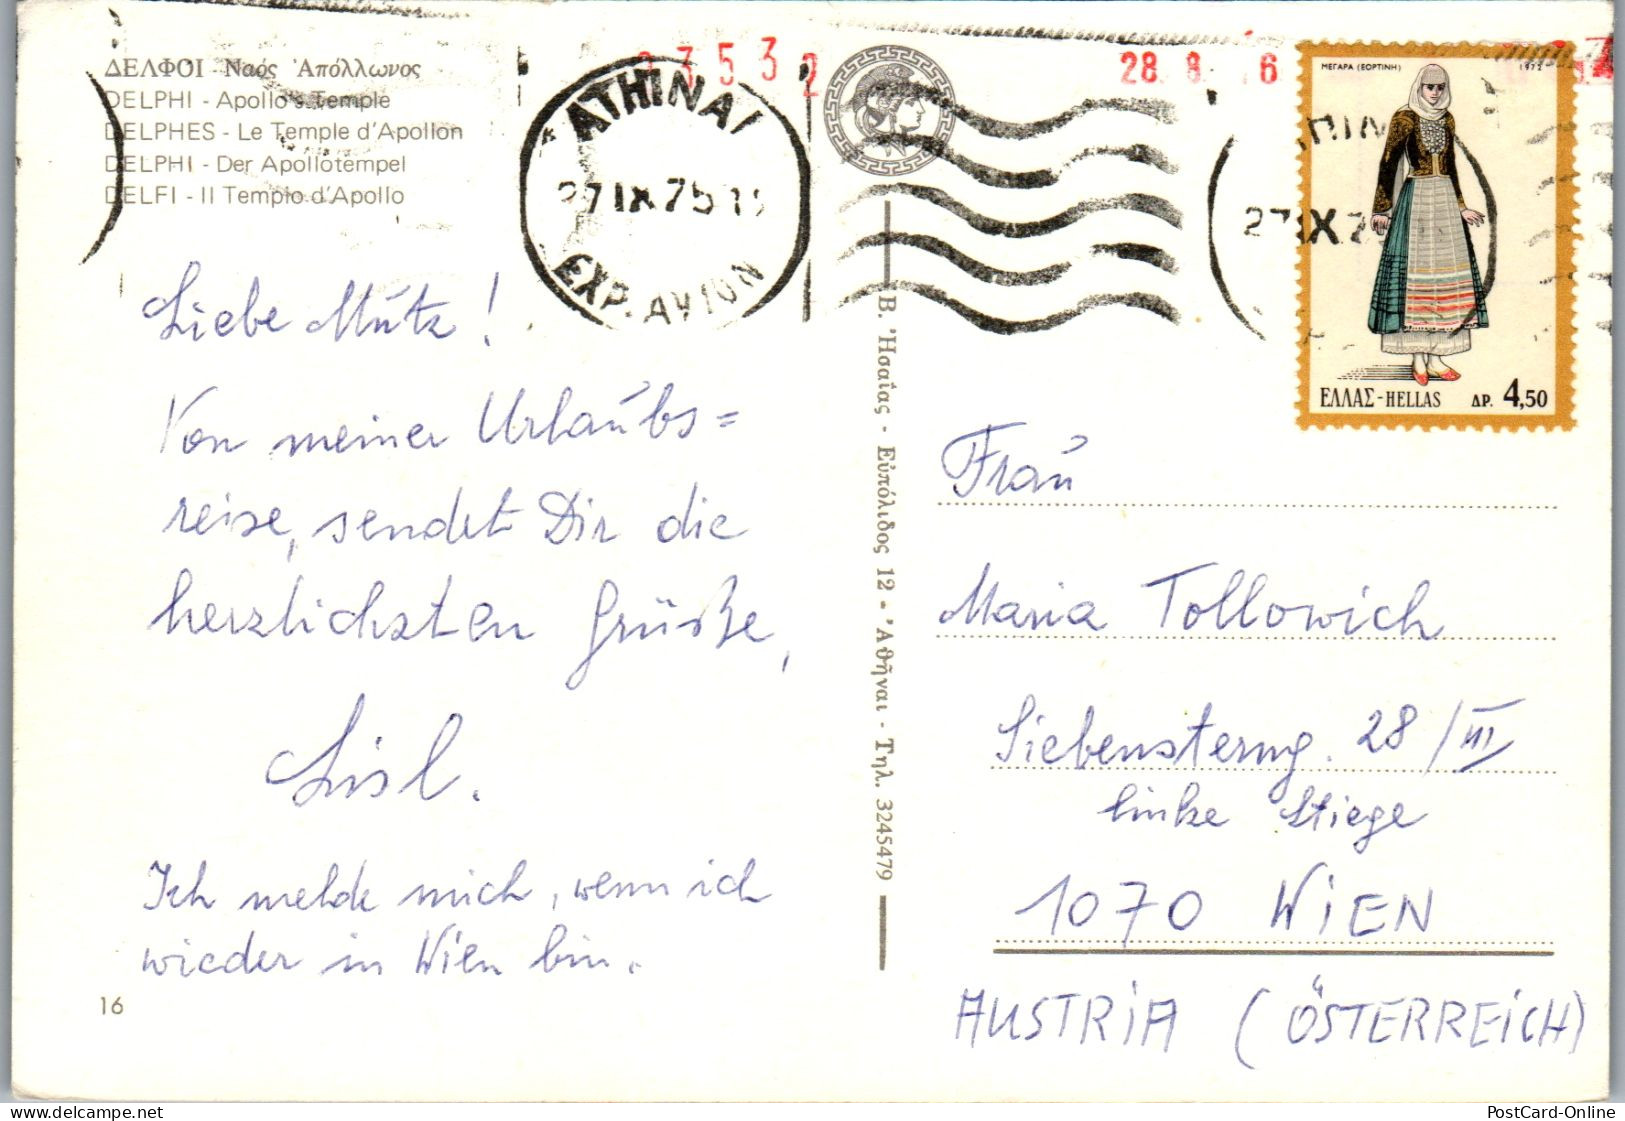 ΔΕΛΦΟΙ - Ναός Ἀπόλλωνος
DELPHI - Apollo's Temple
DELPHES - Le Temple d'Apollon
DELPHI - Der Apollotempel
DELFI - Il Tempio d'Apollo
ATHINAI
27 IX 75
EXP. AVION
3532
28.8. 6
27 IX 7
ΜΕΓΑΡΑ (ΕΟΡΤΙΝΗ) 1972
ΕΛΛΑΣ-HELLAS ΔΡ. 4,50
Liebe Mútz!
Von meiner Urlaubs=
reise, sendet Dir die
herzlichsten Grüße,
Lisl.
Ich melde mich, wenn ich
wieder in Wien bin.
16
Β. Ἠσαΐας - Εὐπόλιδος 12 - Ἀθῆναι - Τηλ. 3245479
Frau
Maria Tollowich
Siebensterng. 28/III
linke Stiege
1070 WiEN
AUSTRiA (ÖSTERREiCH)
www.delcampe.net
PostCard-Online